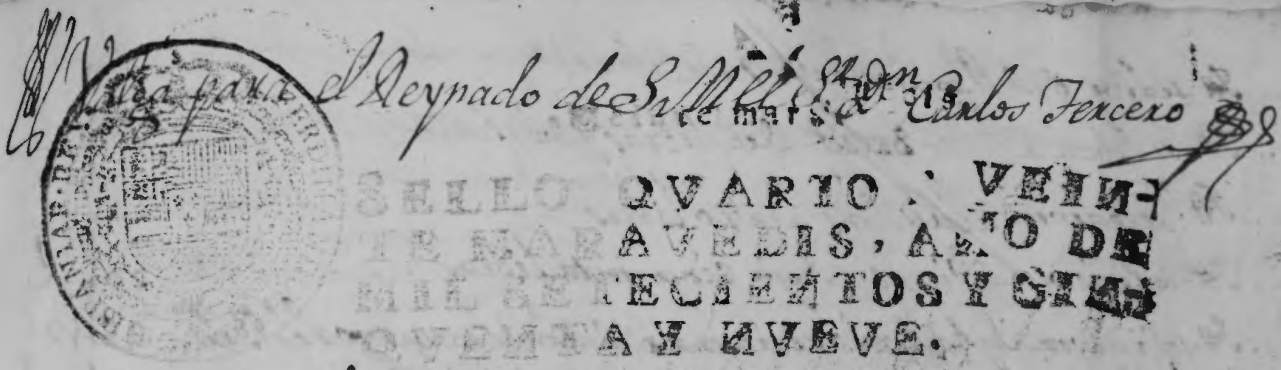 Valga para el Reynado de S. M. el Sr. Dn. Carlos Tercero
SELLO QVARTO, VEIN-
TE MARAVEDIS, AÑO DE
MIL SETECIENTOS Y CIN-
QVENTA Y NVEVE.